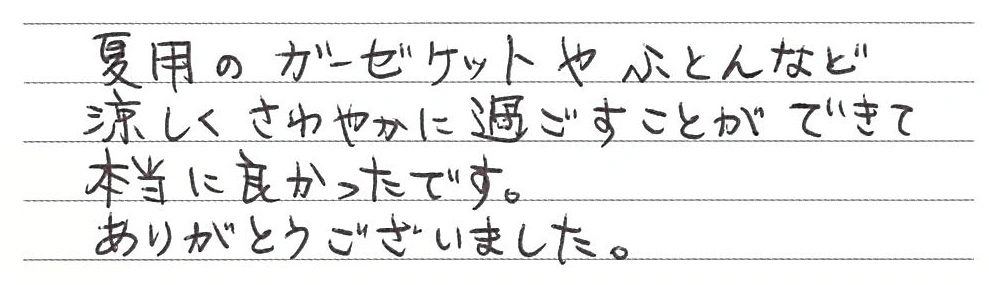 夏用のガーゼケットやふとんなど
涼しくさわやかに過ごすことができて
本当に良かったです。
ありがとうございました。